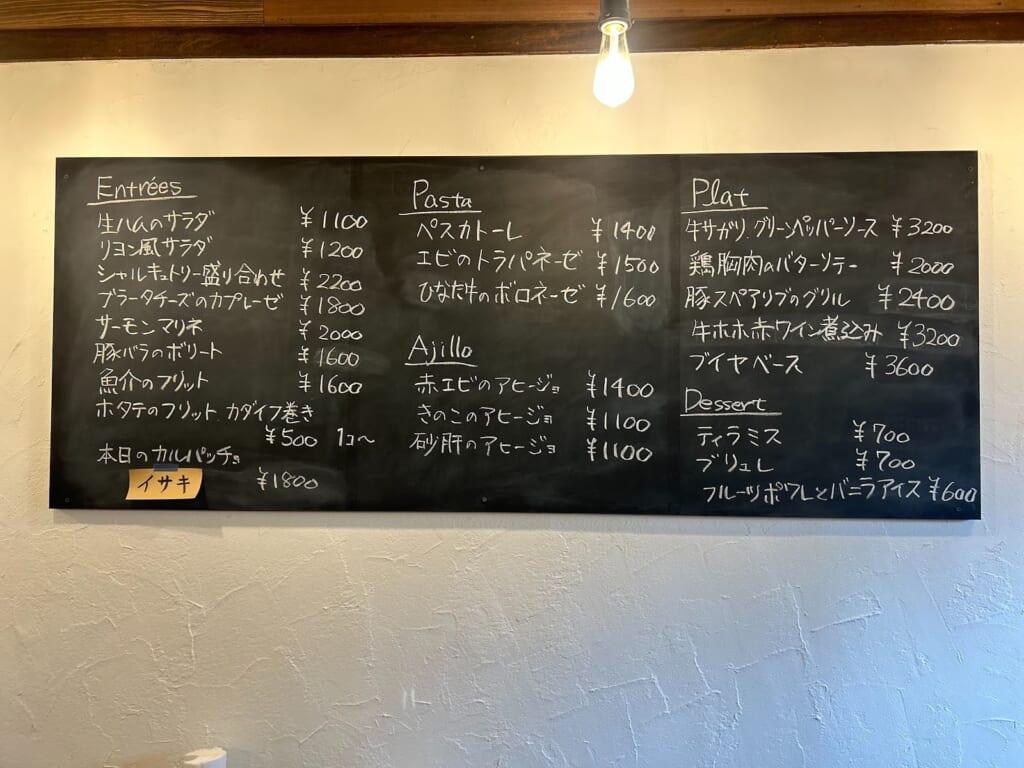 Entrées
生ハムのサラダ ¥1100
リヨン風サラダ ¥1200
シャルキュトリー盛り合わせ ¥2200
ブラータチーズのカプレーゼ ¥1800
サーモンマリネ ¥2000
豚バラのボリート ¥1600
魚介のフリット ¥1600
ホタテのフリット カダイフ巻き
¥500 1コ～
本日のカルパッチョ
イサキ ¥1800
Pasta
ペスカトーレ ¥1400
エビのトラパネーゼ ¥1500
ひなた牛のボロネーゼ ¥1600
Ajillo
赤エビのアヒージョ ¥1400
きのこのアヒージョ ¥1100
砂肝のアヒージョ ¥1100
Plat
牛サガリ グリーンペッパーソース ¥3200
鶏胸肉のバターソテー ¥2000
豚スペアリブのグリル ¥2400
牛ホホ赤ワイン煮込み ¥3200
ブイヤベース ¥3600
Dessert
ティラミス ¥700
ブリュレ ¥700
フルーツポワレとバニラアイス ¥600